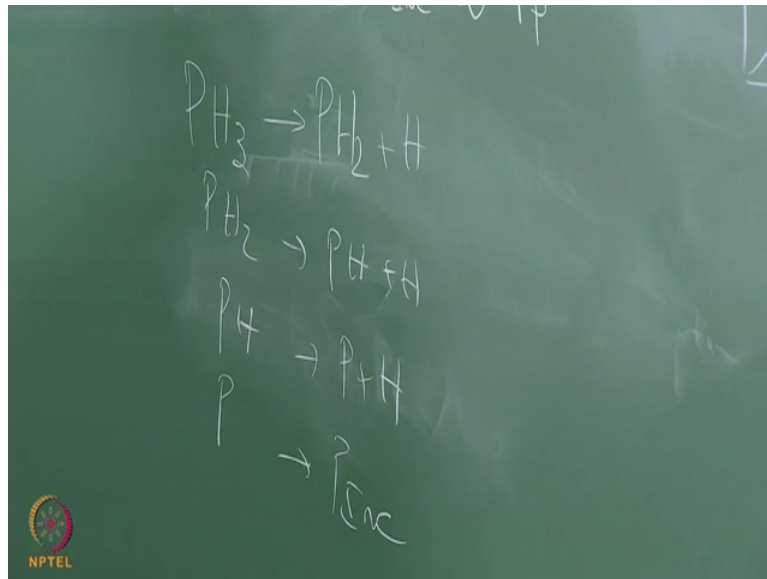 PH₃ → PH₂ + H
PH₂ → PH + H
PH → P + H
P → P_Inc
NPTEL